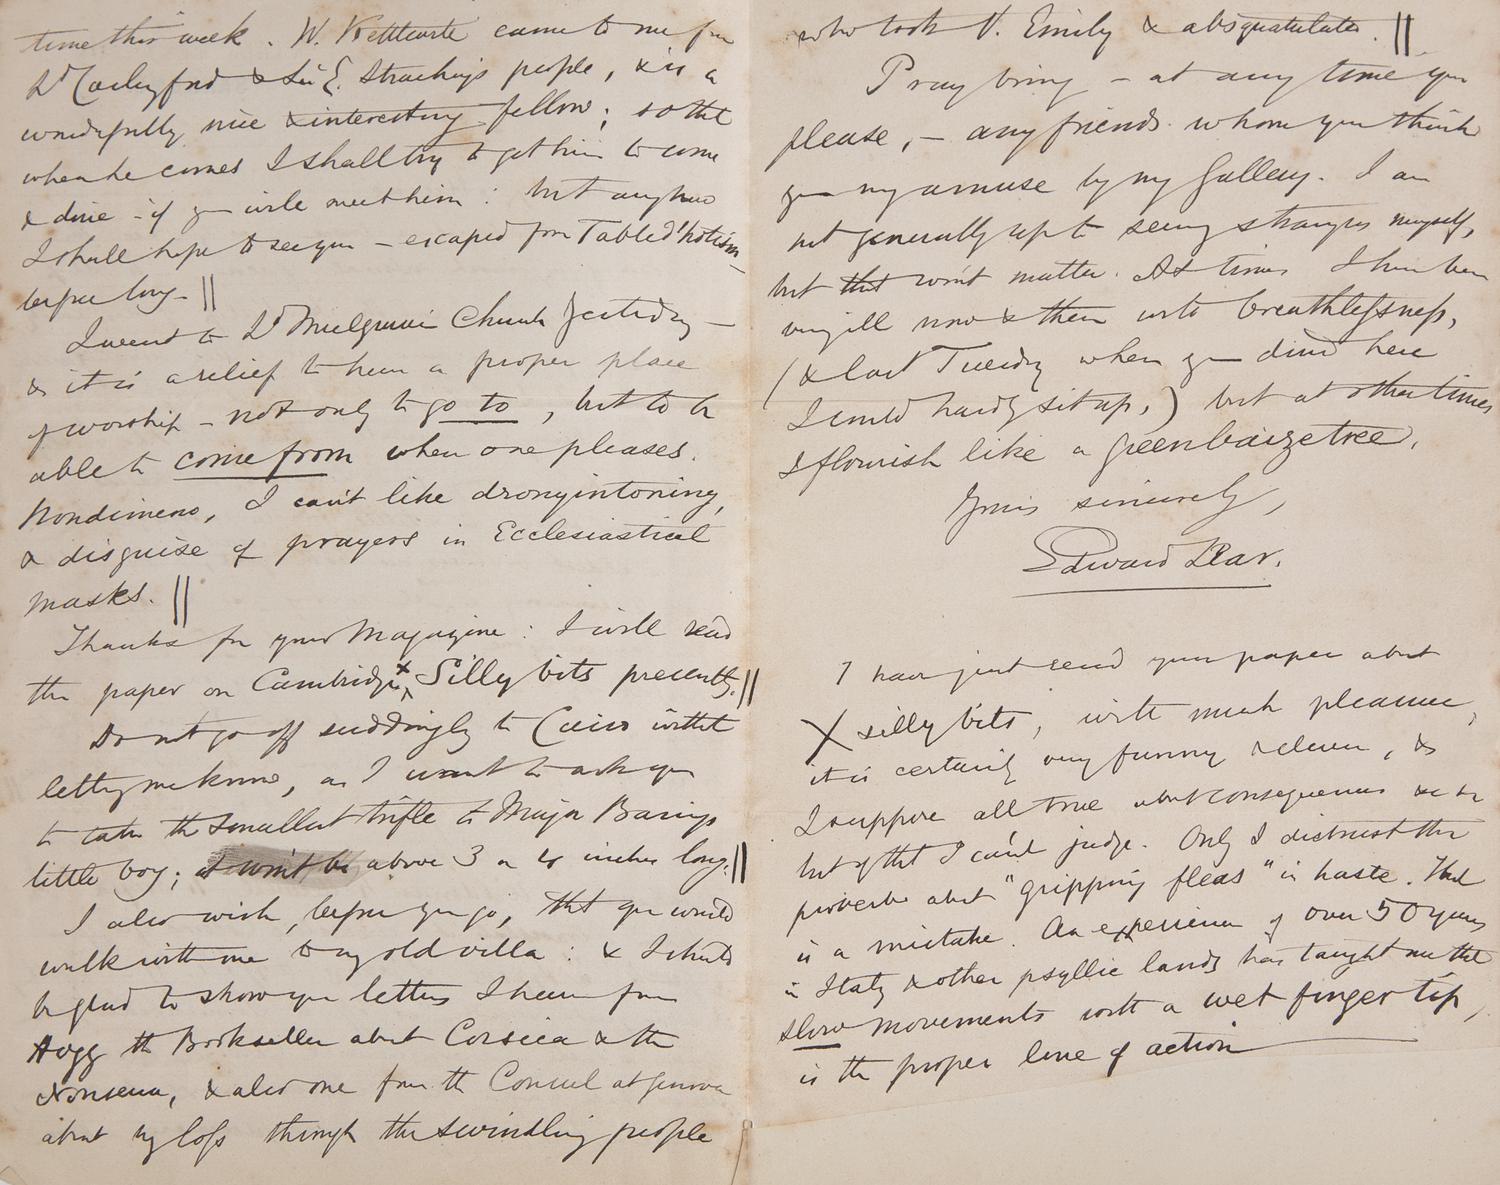 time this week. W. Kettlewell came to me from
Ld Carlingford & Sir E. Strachey's people, & is a
wonderfully nice & interesting fellow; so that
when he comes I shall try to get him to come
& dine – if you will meet him: but anyhow
I shall hope to see you – escaped from Table d'hotism –
before long. ||
I went to Ld Mulgrave's Church yesterday –
& it is a relief to have a proper place
of worship – not only to go to, but to be
able to come from when one pleases.
Nondimeno, I can't like dronyintoning,
& disguise of prayers in Ecclesiastical
masks. ||
Thanks for your Magazine: I will read
the paper on Cambridge X Silly bits presently. ||
Do not go off suddingly to Cairo without
letting me know, as I want to ask you
to take the smallest trifle to Major Barings
little boy; it won't be above 3 or 4 inches long. ||
I also wish, before you go, that you would
walk with me to my old villa: & I should
be glad to show you letters I have from
Hogg the Bookseller about Corsica & the
Nonsense, & also one from the Consul at Genova
about my loss through the swindling people
who took V. Emily & absquatulated. ||
Pray bring – at any time you
please, – any friends whom you think
you may amuse by my Gallery. I am
not generally up to seeing strangers myself,
but that won't matter. At times I have been
very ill now & then with breathlessness,
(& last Tuesday when you dined here
I could hardly sit up,) but at other times
I flourish like a green baize tree.
Yours sincerely,
Edward Lear.
I have just read your paper about
X silly bits, with much pleasure,
it is certainly very funny & clever, &
I suppose all true about consequences &c &c
but of that I can't judge. Only I distrust the
proverb about "gripping fleas" in haste. That
is a mistake. An experience of over 50 years
in Italy & other psyllic lands has taught me that
slow movements with a wet finger tip,
is the proper line of action